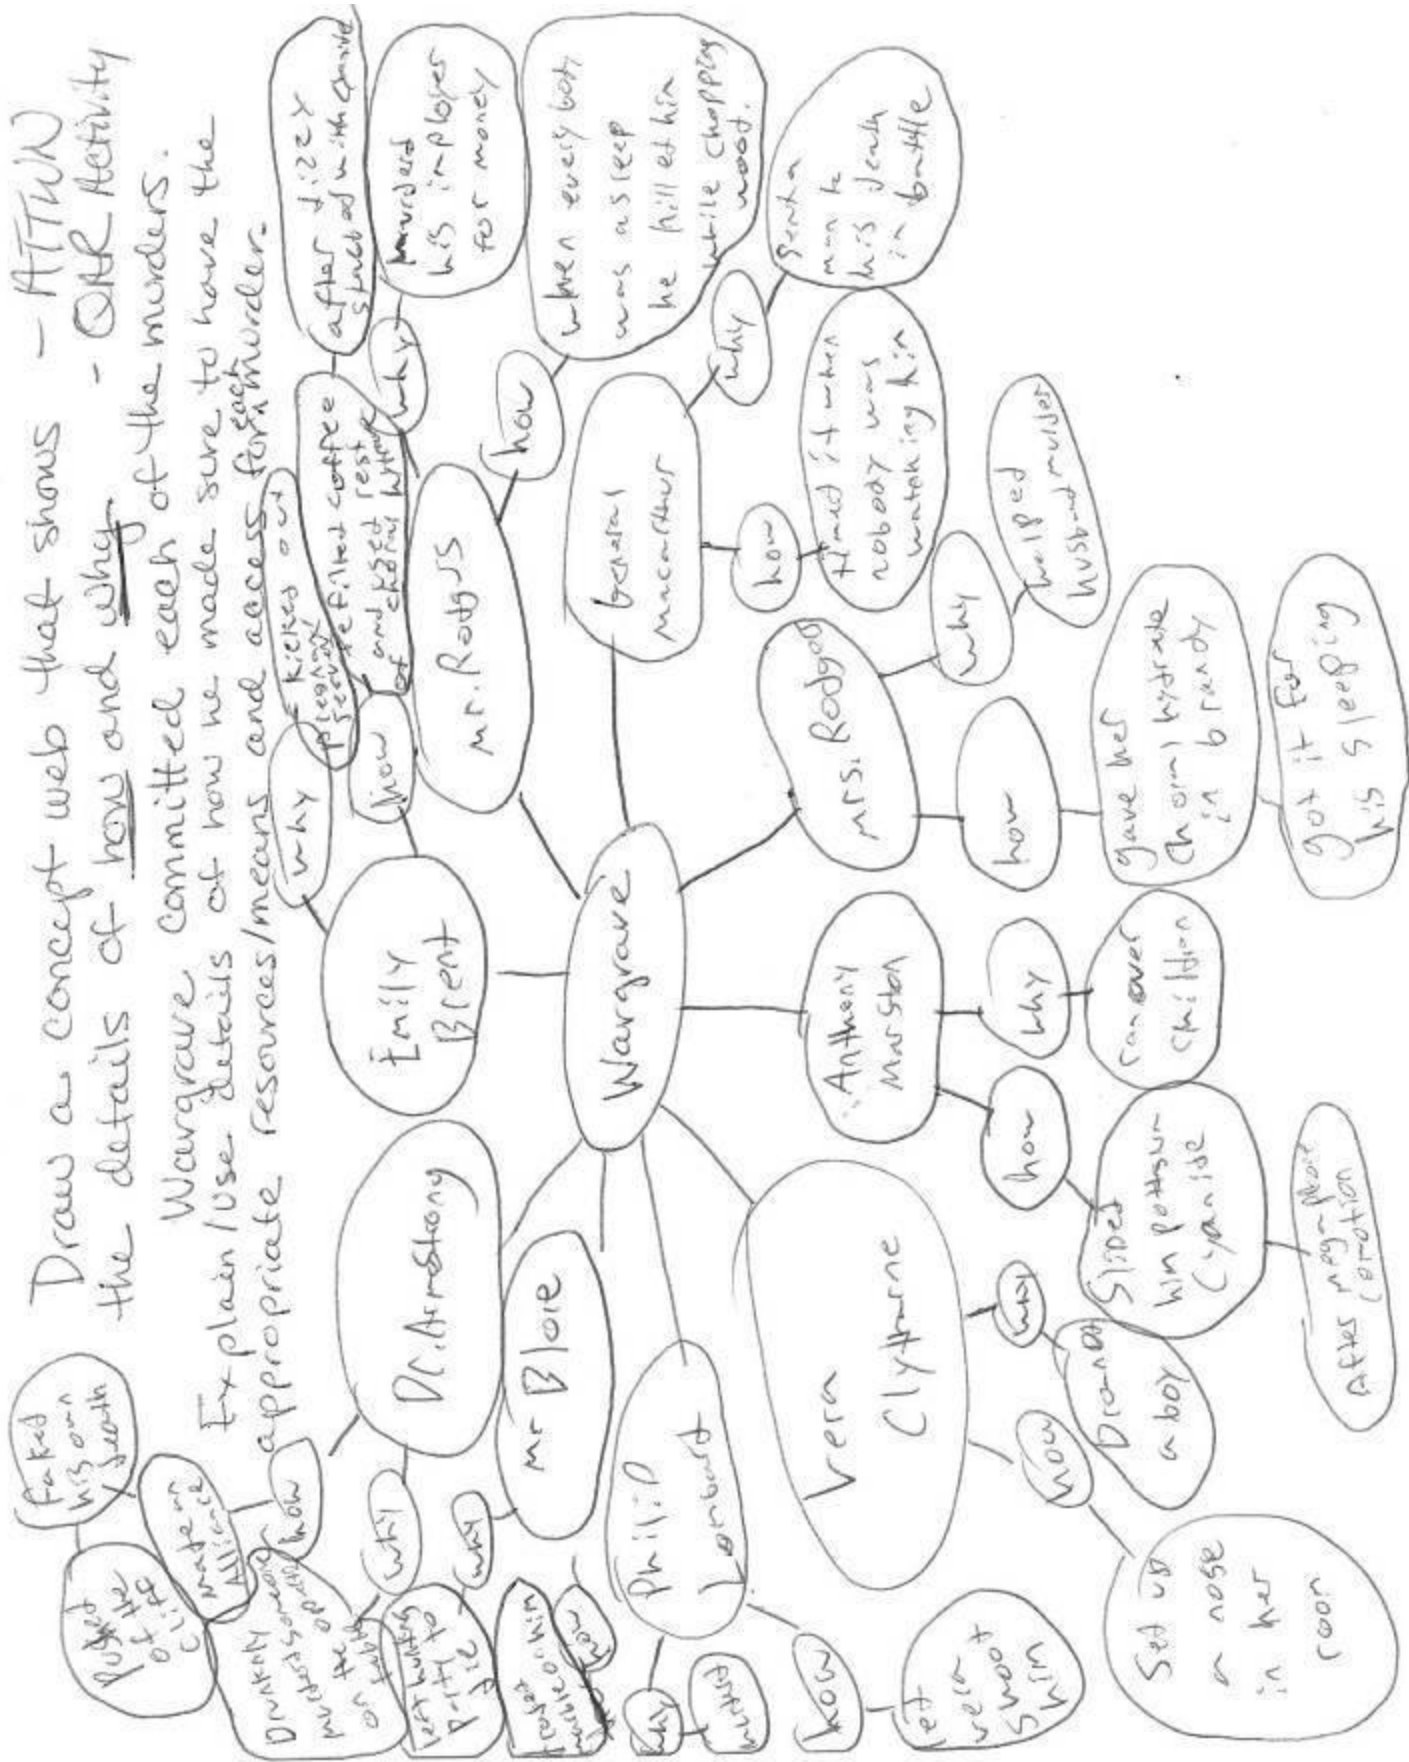 Draw a concept web that shows
the details of how and why
Wargrave committed each of the murders.
Explain/Use details of how he made sure to have the
appropriate resources/means and access for each murder.
- ATTWN
- QAR Activity
Wargrave
Emily
Brent
why
kicked out
pregnant
how
refilled coffee
and used rest
of
after dizzy
stabbed with
Mr. Rodgers
why
Murdered
his imployer
for money
how
when every body
was asleep
he killed him
while chopping
wood.
General
macarthur
why
Sent a
man to
his death
in battle
how
timed it when
nobody was
watching him
Mrs. Rodgers
why
helped
husband murder
how
gave her
hydrate
in brandy
got it for
his sleeping
Anthony
Marston
why
ran over
children
how
Sliped
him
Cyanide
After
Vera
Claythorne
why
a boy
how
Set up
a nose
in her
room
Philip
Lombard
why
how
let
vera
shoot
him
Mr Blore
why
party to
die
how
Dr. Armstrong
why
Drunkenly
murdered someone
on the
table
how
made an
Alliance
faked
his own
death
pushed
of the
cliff